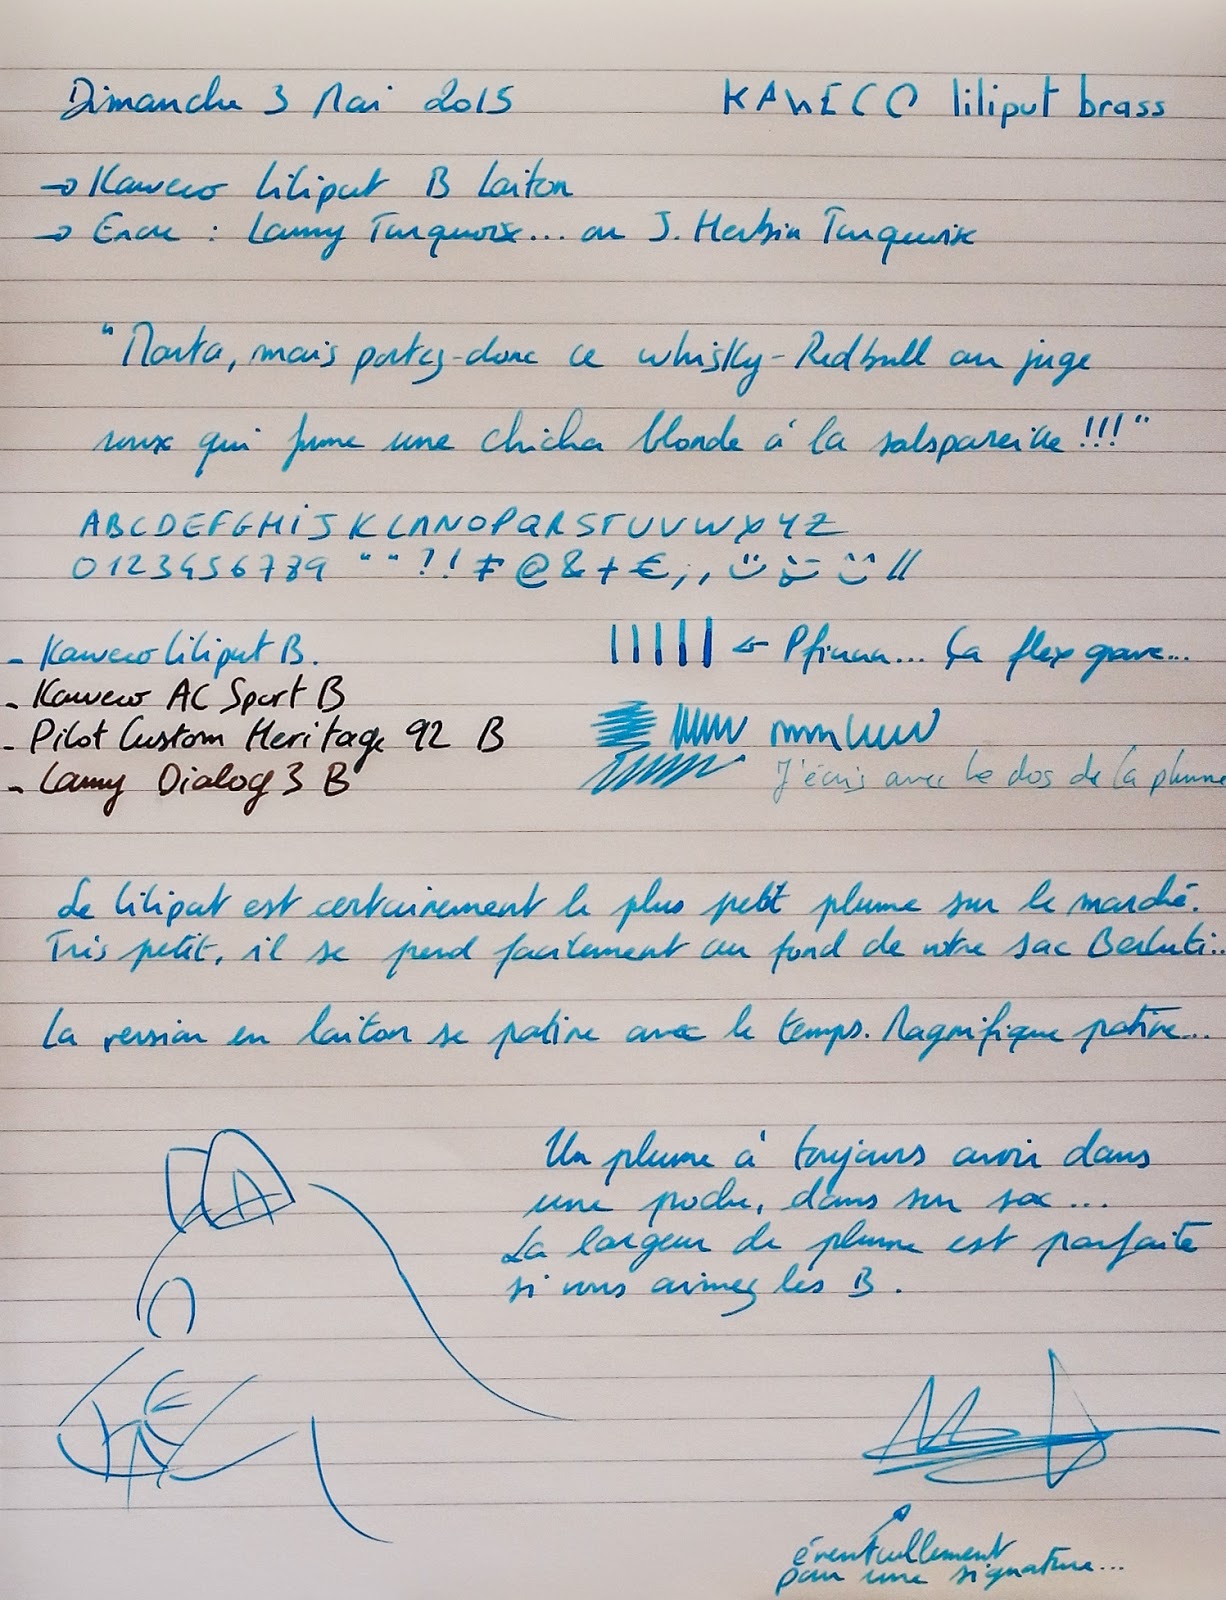 Dimanche 3 Mai 2015 KAWECO liliput brass
→ Kaweco Liliput B Laiton
→ Encre : Lamy Turquoise... ou J. Herbin Turquoise
"Marta, mais portez-donc ce whisky-Redbull au juge
roux qui fume une chicha blonde à la salspareille !!!"
ABCDEFGHIJKLMNOPQRSTUVWXYZ
0123456789 " " ?! ≠ @ & + € ; , // 
- Kaweco Liliput B.
- Kaweco AC Sport B
- Pilot Custom Heritage 92 B
- Lamy Dialog 3 B
← Pfiuuu... Ça flex grave...
J'écris avec le dos de la plume
Le liliput est certainement le plus petit plume sur le marché.
Très petit, il se perd facilement au fond de votre sac Berluti...
La version en laiton se patine avec le temps. Magnifique patine...
Un plume à toujours avoir dans
une poche, dans son sac...
La largeur de plume est parfaite
si vous aimez les B.
éventuellement
pour une signature...